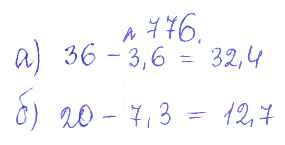 № 776.
а) 36 - 3,6 = 32,4
б) 20 - 7,3 = 12,7